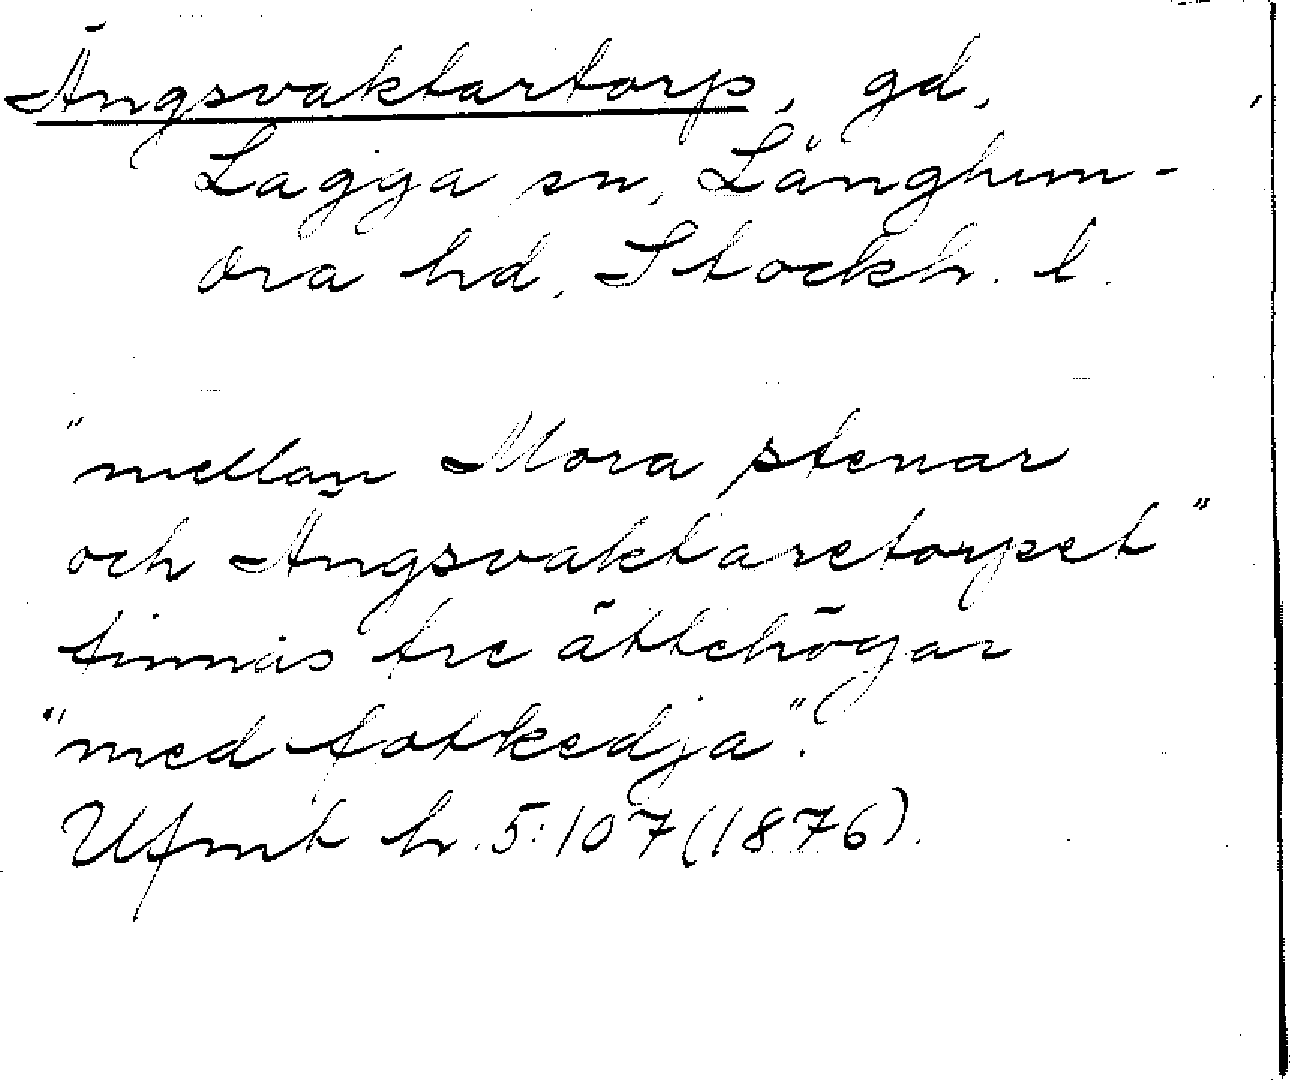 Ängsvaktartorp, gd,
Lagga sn, Långhun-
dra hd, Stockh. l.
"mellan Mora stenar
och Ängsvaktaretorpet"
finnas tre ättehögar
"med fotkedja".
Ufmt h. 5:107 (1876).